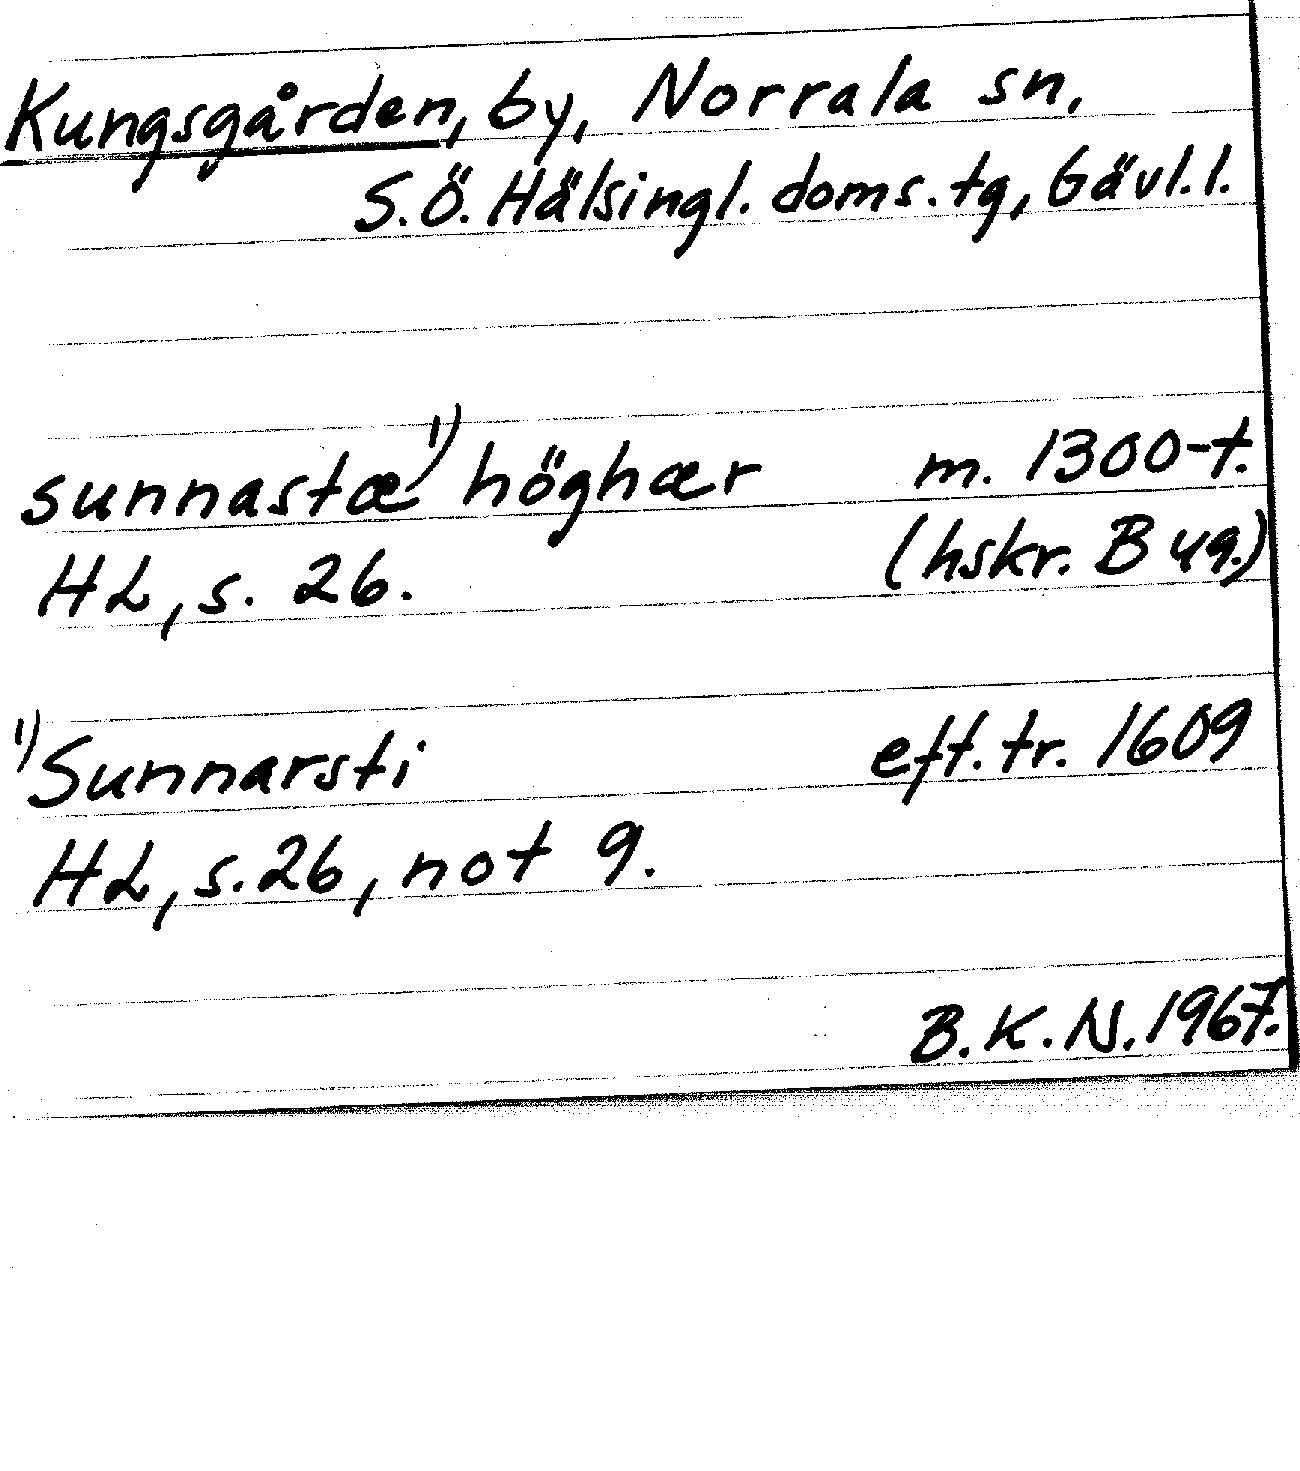 Kungsgården, by, Norrala sn,
S.Ö. Hälsingl. doms. tg, Gävl. l.
sunnastæ¹⁾ höghær m. 1300-t.
HL, s. 26. (hskr. B 49.)
¹⁾Sunnarsti eft. tr. 1609
HL, s. 26, not 9.
B. K. N. 1967.